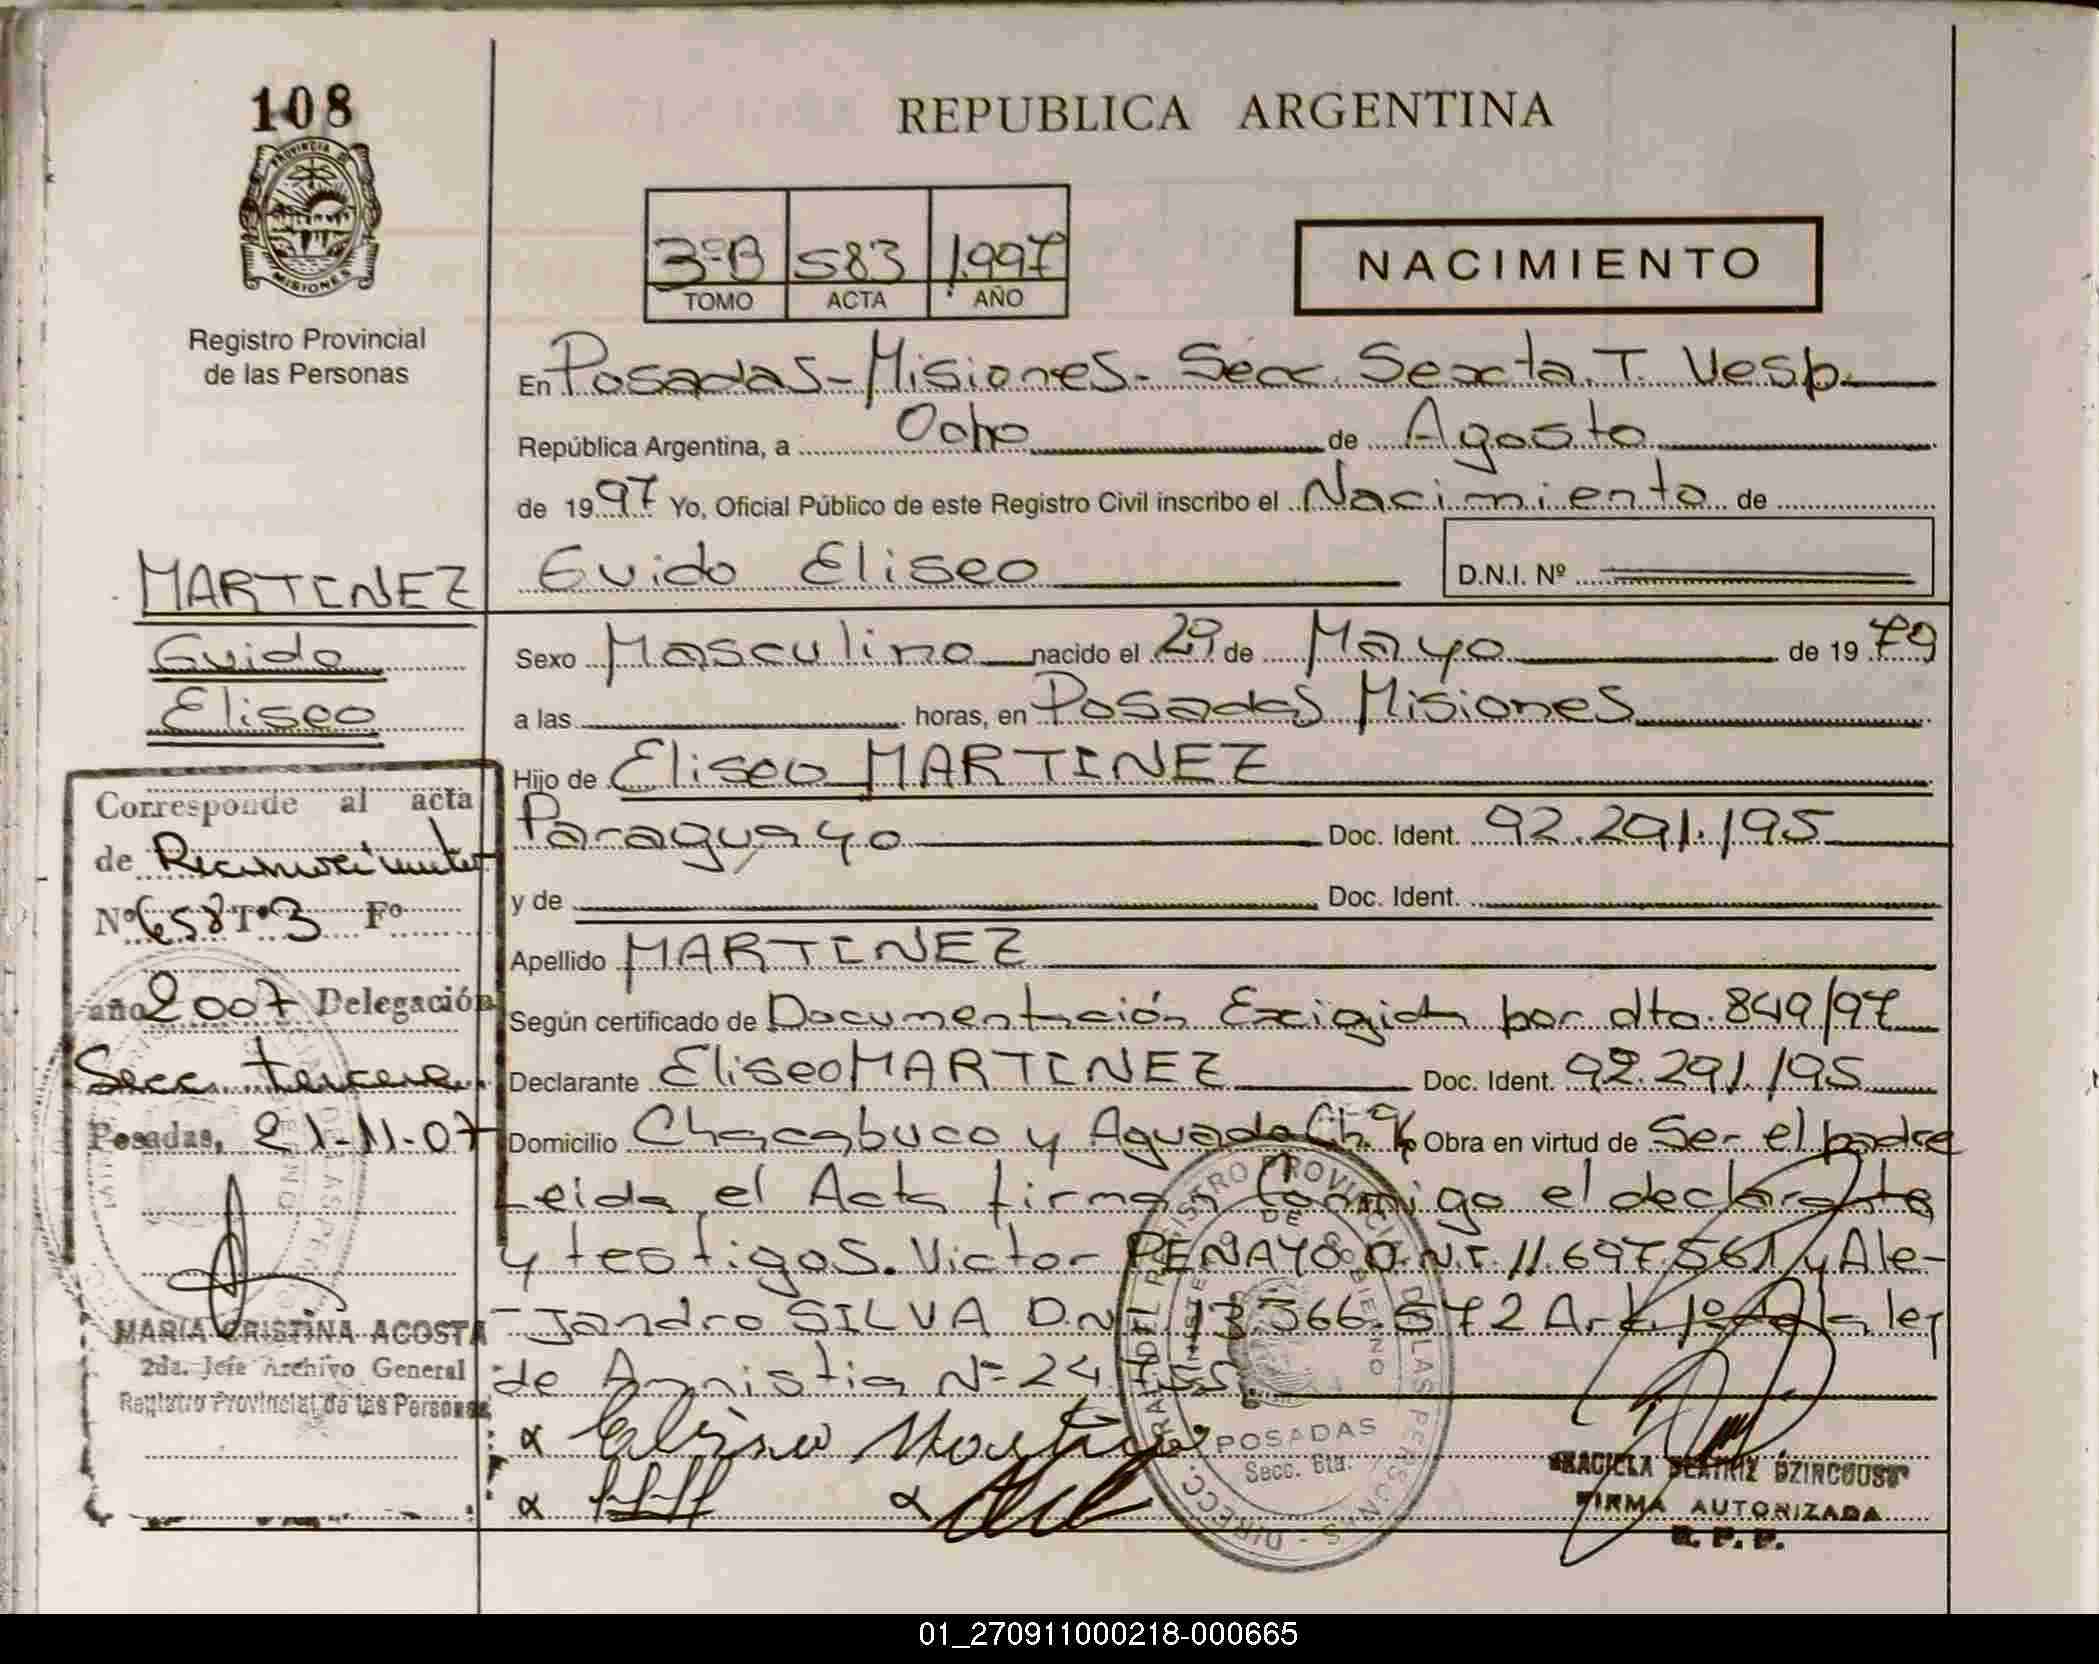 108
REPUBLICA ARGENTINA
PROVINCIA DE
MISIONES
Registro Provincial
de las Personas
3ºB 583 1997
TOMO ACTA AÑO
NACIMIENTO
En Posadas-Misiones- Secc. Sexta. T. Vesp.
República Argentina, a Ocho de Agosto
de 1997 Yo, Oficial Público de este Registro Civil inscribo el Nacimiento de
Guido Eliseo
D.N.I. Nº
MARTINEZ
Guido
Eliseo
Sexo Masculino nacido el 29 de Mayo de 1979
a las horas, en Posadas Misiones
Hijo de Eliseo MARTINEZ
Paraguayo Doc. Ident. 92.291.195
y de Doc. Ident.
Apellido MARTINEZ
Según certificado de Documentación Exigida por dto. 849/97
Declarante Eliseo MARTINEZ Doc. Ident. 92.291.195
Domicilio Chacabuco y Aguado Ch. Obra en virtud de Ser el padre
Leida el Acta firman Conmigo el declarante
y testigos. Victor PENAYO D.N.I. 11.697.561 y Ale-
-jandro SILVA D.N.I. 13.366.572 Art. 1º de la ley
de Amnistia Nº 24.
Corresponde al acta
de Reconocimiento
Nº 658 Tº 3 Fº
año 2007 Delegación
Secc. tercera
Posadas, 21-11-07
MARIA CRISTINA ACOSTA
2da. Jefe Archivo General
Registro Provincial de las Personas
Eliseo Martinez
DIRECC. GRAL. DEL REGISTRO PROVINCIAL DE LAS PERSONAS
POSADAS
Secc. 6ta.
GRACIELA BEATRIZ
FIRMA AUTORIZADA
R. P. P.
01_270911000218-000665